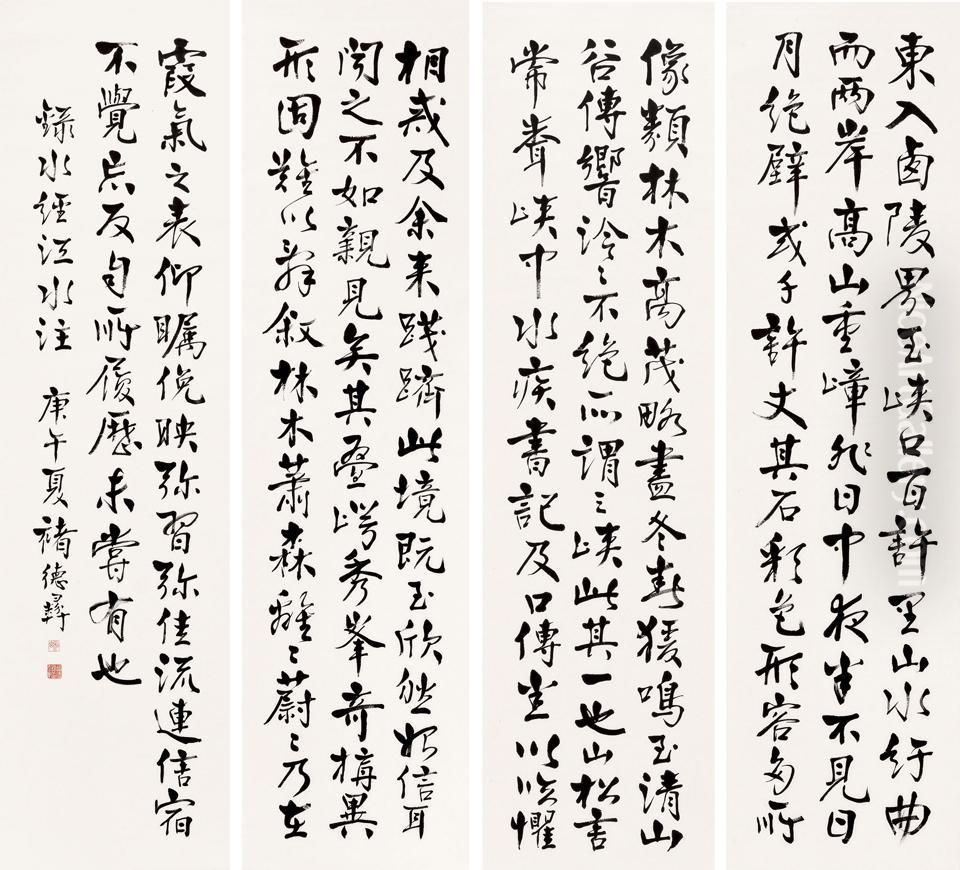 東入西陵界至峽口百許里山水紆曲
而兩岸高山重嶂非日中夜半不見日
月絕壁或千許丈其石彩色形容多所
像類林木高茂略盡冬春猨鳴至清山
谷傳響泠〻不絕所謂三峽此其一也山松言
常聞峽中水疾書記及口傳悉以臨懼
相戒及余來踐躋此境既至欣然始信耳
聞之不如親見矣其疊崿秀峯奇構異
形固難以辭敘林木蕭森離〻蔚〻乃在
霞氣之表仰矚俛映弥習弥佳流連信宿
不覺忘反自所履歷未嘗有也
錄水經江水注 庚午夏 褚德彝